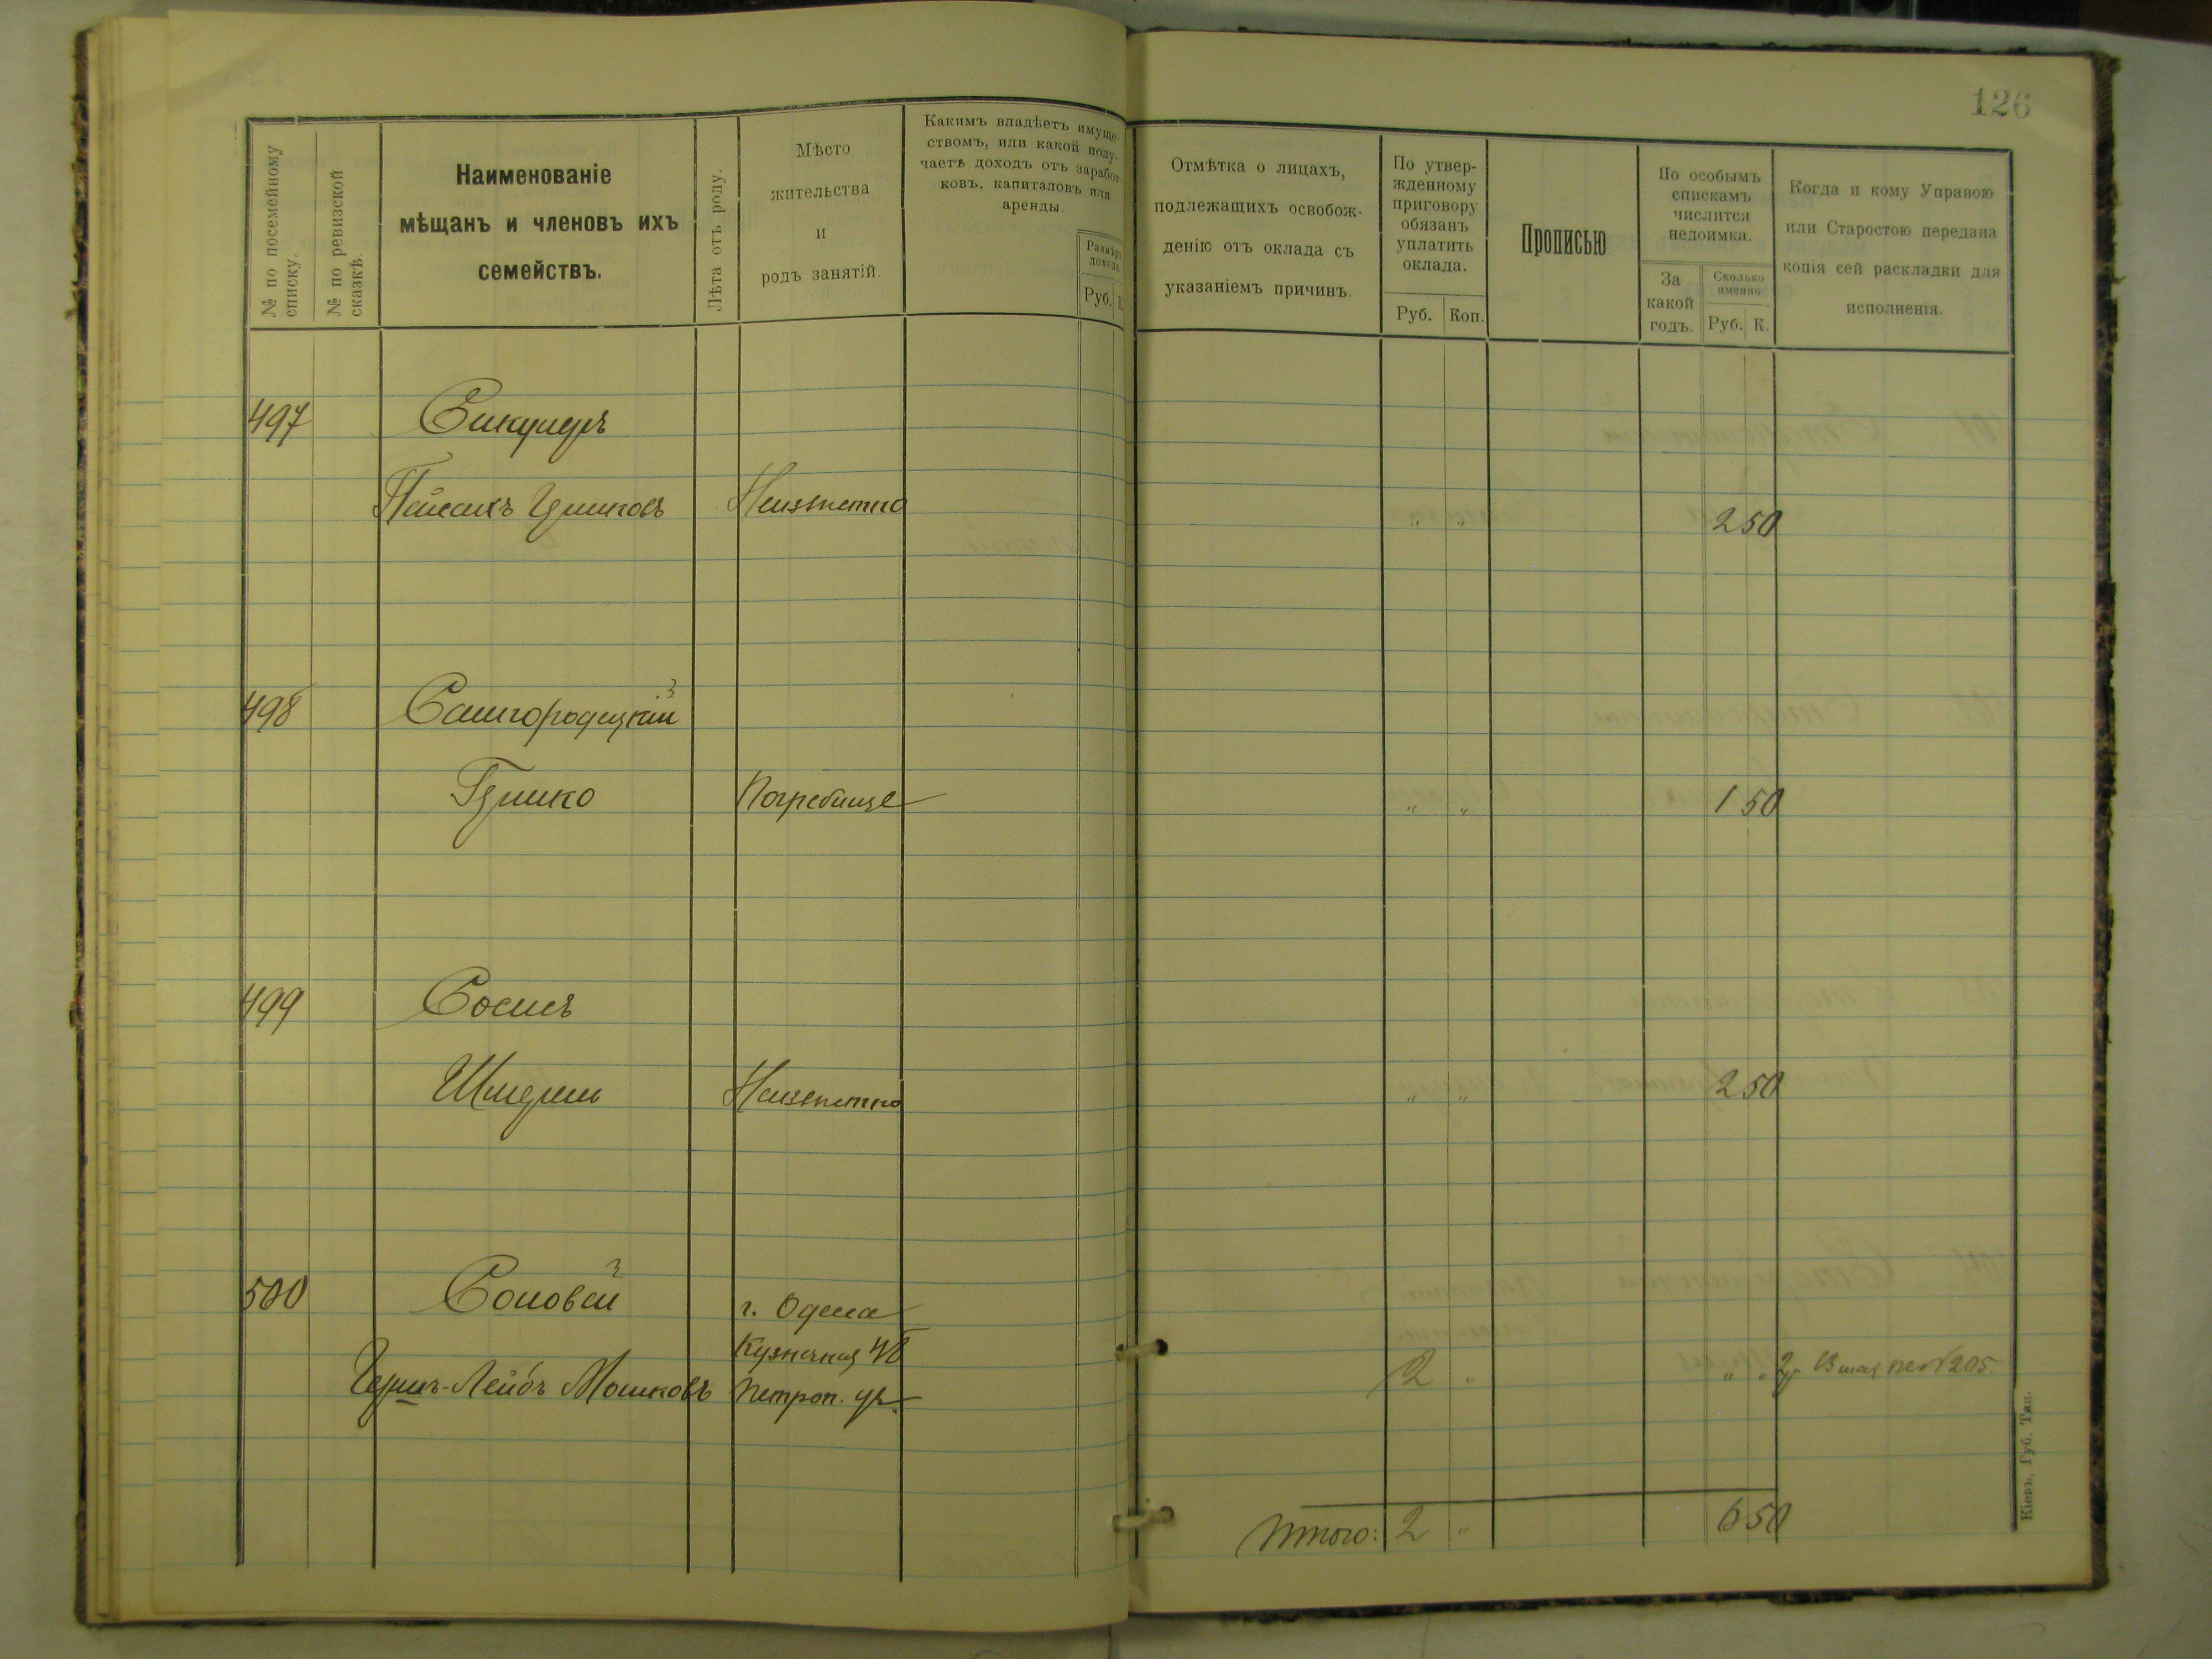 126
№ по посемейному списку.
№ по ревизской сказкѣ.
Наименованіе
мѣщанъ и членовъ ихъ
семействъ.
Лѣта отъ роду.
Мѣсто
жительства
и
родъ занятій.
Какимъ владѣетъ имуще-
ствомъ, или какой полу-
чаетъ доходъ отъ заработ-
ковъ, капиталовъ или
аренды.
Размѣръ
дохода.
Руб. К.
Отмѣтка о лицахъ,
подлежащихъ освобож-
денію отъ оклада съ
указаніемъ причинъ.
По утвер-
жденному
приговору
обязанъ
уплатить
оклада.
Руб. Коп.
Прописью
По особымъ
спискамъ
числится
недоимка.
За
какой
годъ.
Сколько
именно
Руб. К.
Когда и кому Управою
или Старостою передана
копія сей раскладки для
исполненія.
497
Неизвѣстно " " 2 50
498 Самгородецкій
Гершко Погребище " " 1 50
499
Неизвѣстно " " 2 50
500 Соловей г. Одесса
Кузнечная
Герш-Лейбъ Мошковъ Петроп. ул. 2 " " " 13 мая № 1205.
Итого: 2 " 6 50
Кіевъ, Губ. Тип.